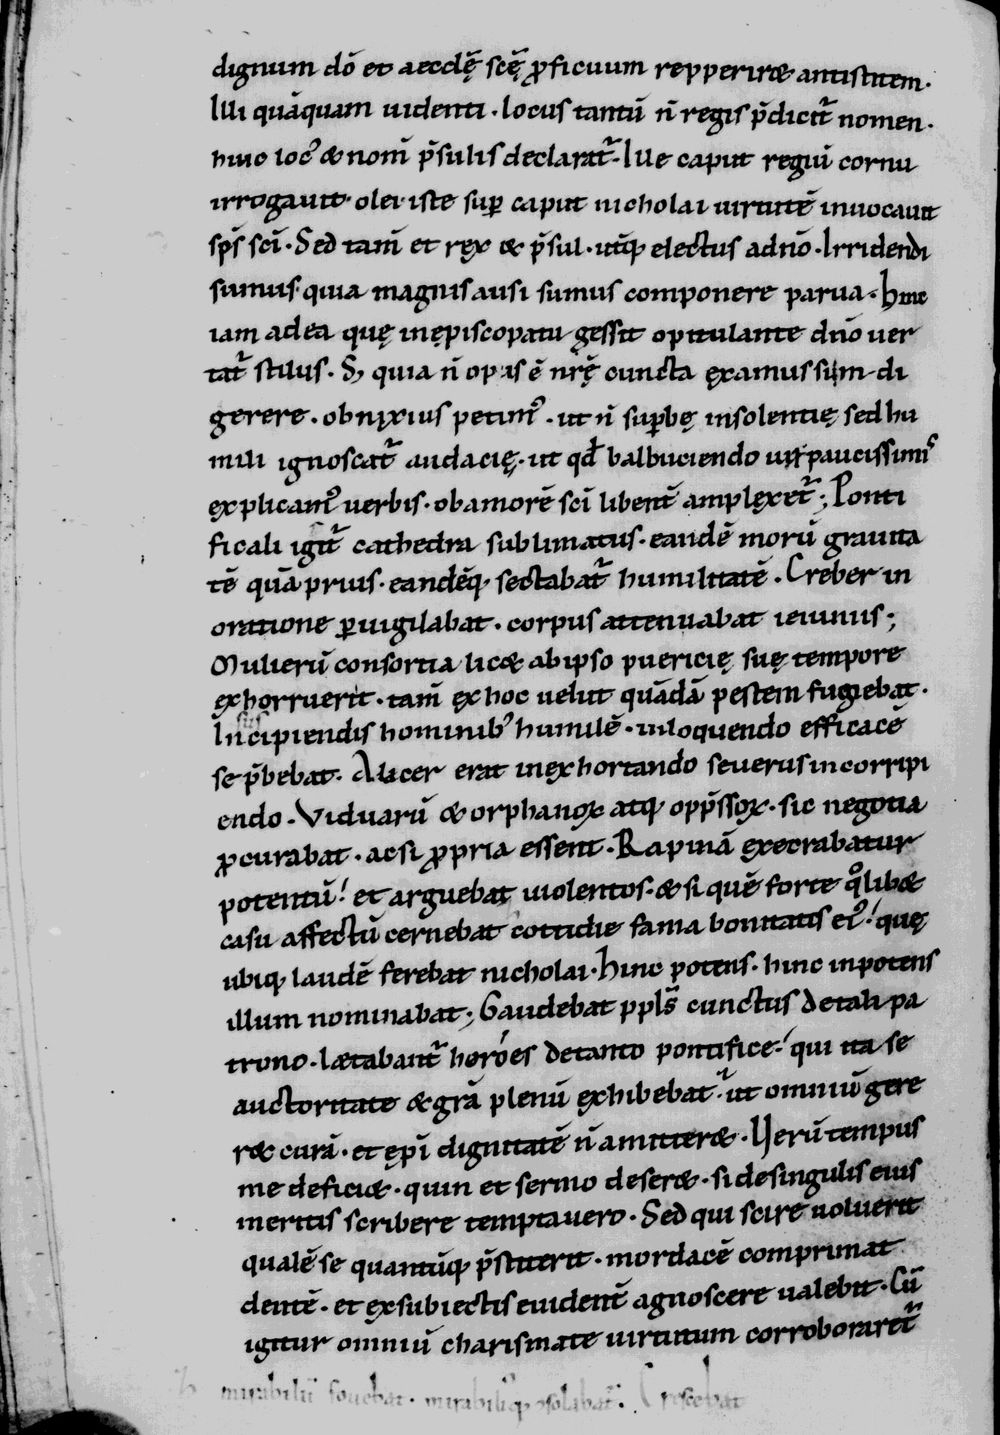 dignum dō et aecclę̄ scę̄ ꝓficuum repperiræ antistitem.
Illi quāquam uidenti. locus tantū n̄ regis p̄dicit᷑ nomen.
hinc locꝰ & nom̄ p̄sulis declarat᷑. Ille caput regiū cornu
irrogauit olei. iste suꝑ caput nicholai uirtutē inuocauit
sp̄s sc̄i. Sed tam̄ et rex & p̄sul. utq̄ꝫ electus ad n̄o. Irridendi
sumus. quia magnis ausi sumus componere parua. Hinc
iam ad ea quę in ępiscopatu gessit opitulante dn̄o uer
tat᷑ stilus. Sꝫ quia n̄ opis ē nr̄ę̄ cuncta examussim di
gerere. obnixius petimꝰ. ut n̄ suꝑbę insolentię sed hu
mili ignoscat᷑ audacię. ut qđ balbuciendo uix paucissimꝰ
explicamꝰ uerbis. ob amorē sc̄i libent̄ amplexet᷑; Ponti
ficali igit᷑ cathedra sublimatus. eandē morū grauita
tē quā prius. eandēqꝫ sectabat᷑ humilitatē. Creber in
oratione ꝑuigilabat. corpus attenuabat ieiuniis;
Mulierū consortia licæ ab ipso puericię suę tempore
exhorruerit. tam̄ ex hoc uelut quādā pestem fugiebat.
In suscipiendis hominibꝰ humilē. in loquendo efficacē
se p̄bebat. Alacer erat in exhortando seuerus in corripi
endo. Viduarū & orphanoꝝ atqꝫ opp̄ssoꝝ. sic negotia
ꝓcurabat. ac si ꝓpria essent. Rapinā execrabatur
potentū! et arguebat uiolentos. & si quē forte qͦlibæ
casu affectū cernebat cottidie fama bonitatis eiꝰ! quę
ubiqꝫ laudē ferebat nicholai. Hinc potens. hinc inpotens
illum nominabat; Gaudebat ppl̄s cunctus de tali pa
trono. lætabant᷑ heróes de tanto pontifice! qui ita se
auctoritate & gr̄a plenū exhibebat. ut omniū gere
ræ curā. et ęp̄i dignitatē n̄ amitteræ. Verū tempus
me deficiæ. quin et sermo deseræ. si de singulis eius
meritis scribere temptauero. Sed qui scire uoluerit
qualē se quantūqꝫ p̄stiterit. mordacē comprimat
dentē. et ex subiectis euident̄ agnoscere ualebit. Cū
igitur omniū charismate uirtutum corroboraret᷑
mirabiliū fouebat. mirabiliqꝫ solabat᷑. Crescebat